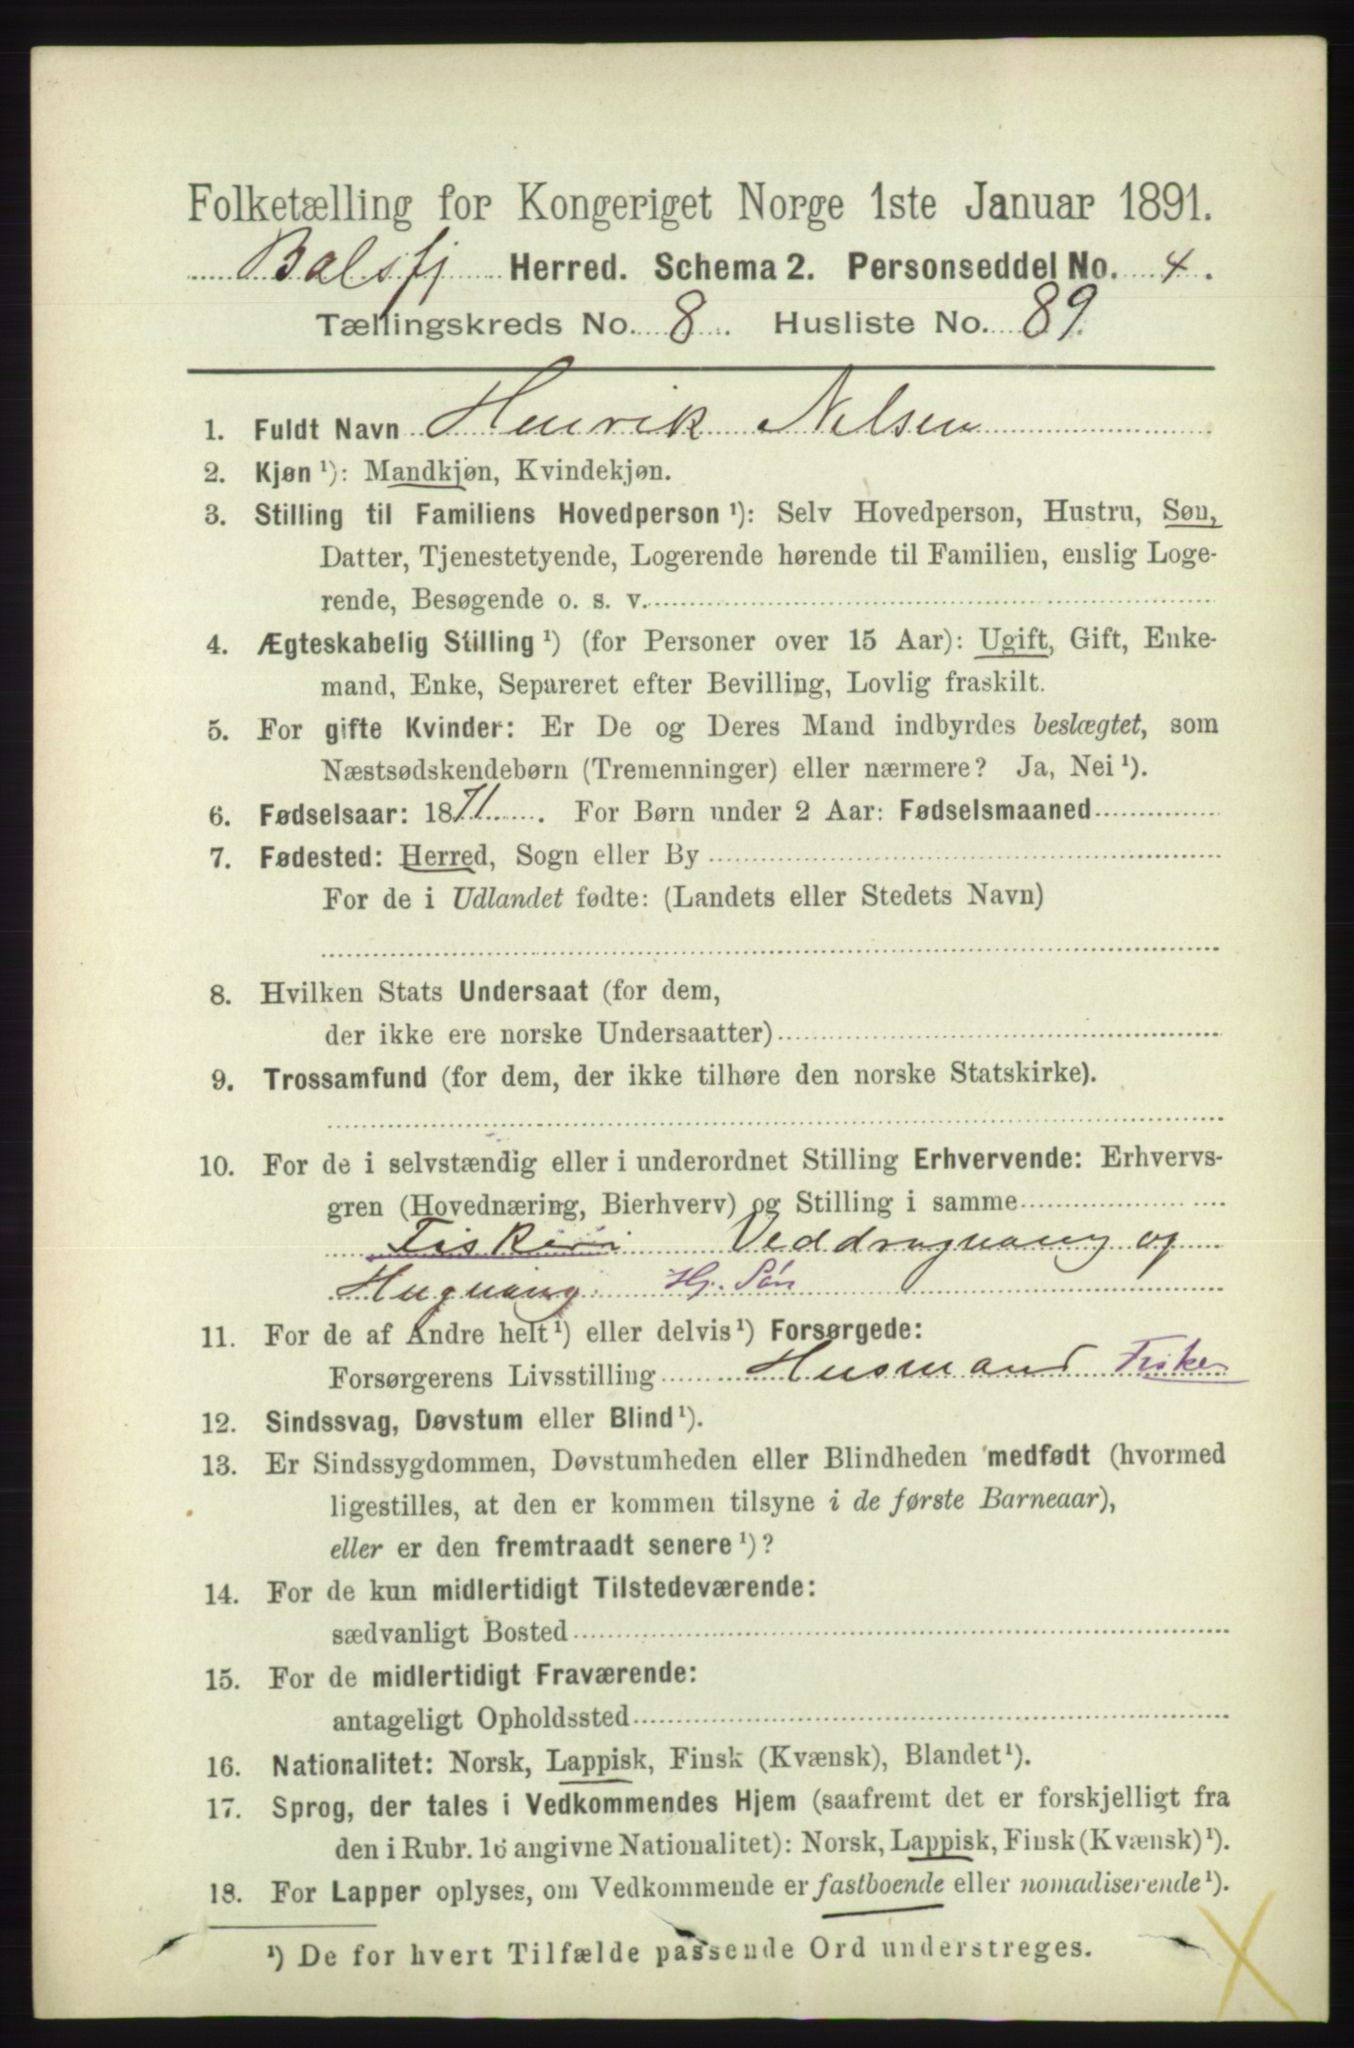 Folketælling for Kongeriget Norge 1ste Januar 1891.
Balsfj Herred. Schema 2. Personseddel No. 4.
Tællingskreds No. 8. Husliste No. 89.
1. Fuldt Navn Henrik Nilsen
2. Kjøn ¹): Mandkjøn, Kvindekjøn.
3. Stilling til Familiens Hovedperson ¹): Selv Hovedperson, Hustru, Søn,
Datter, Tjenestetyende, Logerende hørende til Familien, enslig Loge-
rende, Besøgende o. s. v.
4. Ægteskabelig Stilling ¹) (for Personer over 15 Aar): Ugift, Gift, Enke-
mand, Enke, Separeret efter Bevilling, Lovlig fraskilt.
5. For gifte Kvinder: Er De og Deres Mand indbyrdes beslægtet, som
Næstsødskendebørn (Tremenninger) eller nærmere? Ja, Nei ¹).
6. Fødselsaar: 1871. For Børn under 2 Aar: Fødselsmaaned
7. Fødested: Herred, Sogn eller By
For de i Udlandet fødte: (Landets eller Stedets Navn)
8. Hvilken Stats Undersaat (for dem,
der ikke ere norske Undersaatter)
9. Trossamfund (for dem, der ikke tilhøre den norske Statskirke).
10. For de i selvstændig eller i underordnet Stilling Erhvervende: Erhvervs-
gren (Hovednæring, Bierhverv) og Stilling i samme
Fiskeri Veddragning og
Hugning Hj. Søn
11. For de af Andre helt ¹) eller delvis ¹) Forsørgede:
Forsørgerens Livsstilling Husmand Fisker
12. Sindssvag, Døvstum eller Blind ¹).
13. Er Sindssygdommen, Døvstumheden eller Blindheden medfødt (hvormed
ligestilles, at den er kommen tilsyne i de første Barneaar),
eller er den fremtraadt senere ¹)?
14. For de kun midlertidigt Tilstedeværende:
sædvanligt Bosted
15. For de midlertidigt Fraværende:
antageligt Opholdssted
16. Nationalitet: Norsk, Lappisk, Finsk (Kvænsk), Blandet ¹).
17. Sprog, der tales i Vedkommendes Hjem (saafremt det er forskjelligt fra
den i Rubr. 16 angivne Nationalitet): Norsk, Lappisk, Finsk (Kvænsk) ¹).
18. For Lapper oplyses, om Vedkommende er fastboende eller nomadiserende ¹).
¹) De for hvert Tilfælde passende Ord understreges.